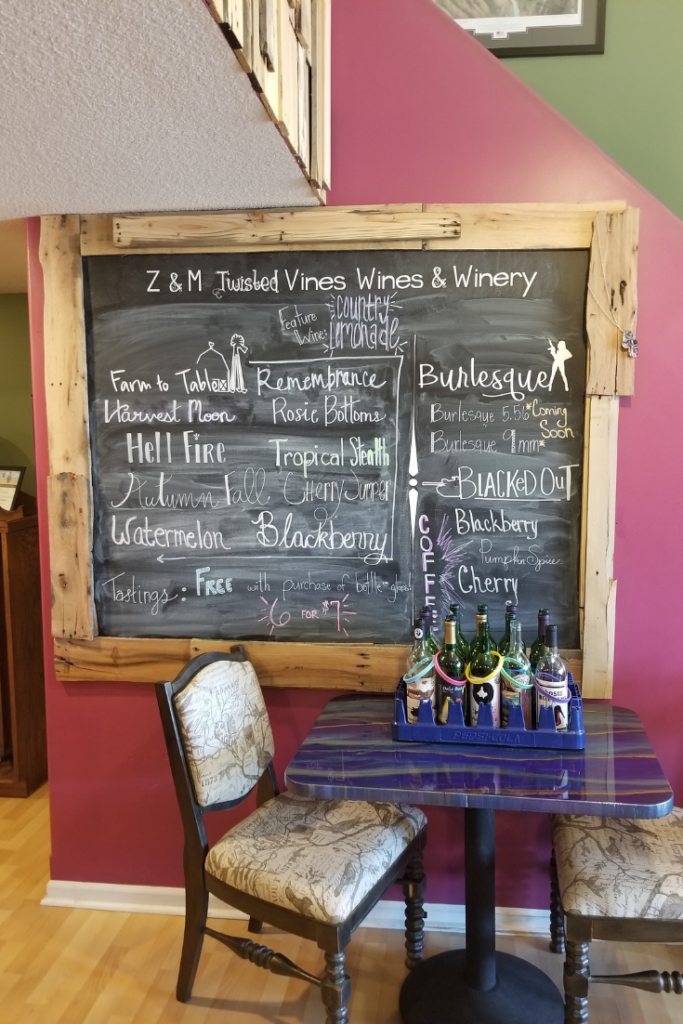 Z & M Twisted Vines Wines & Winery
Feature
Wine:
Country
Lemonade
Farm to Table
Remembrance
Harvest Moon
Rosie Bottoms
Hell Fire
Tropical Stealth
Autumn Fall
Cherry Jumper
Watermelon
Blackberry
Tastings: FREE with purchase of bottle
6 FOR $7
Burlesque
Burlesque 5.56
Burlesque 9mm
*Coming
Soon*
BLACKED OUT
COFFEE
Blackberry
Pumpkin Spice
Cherry
PEPSI-COLA